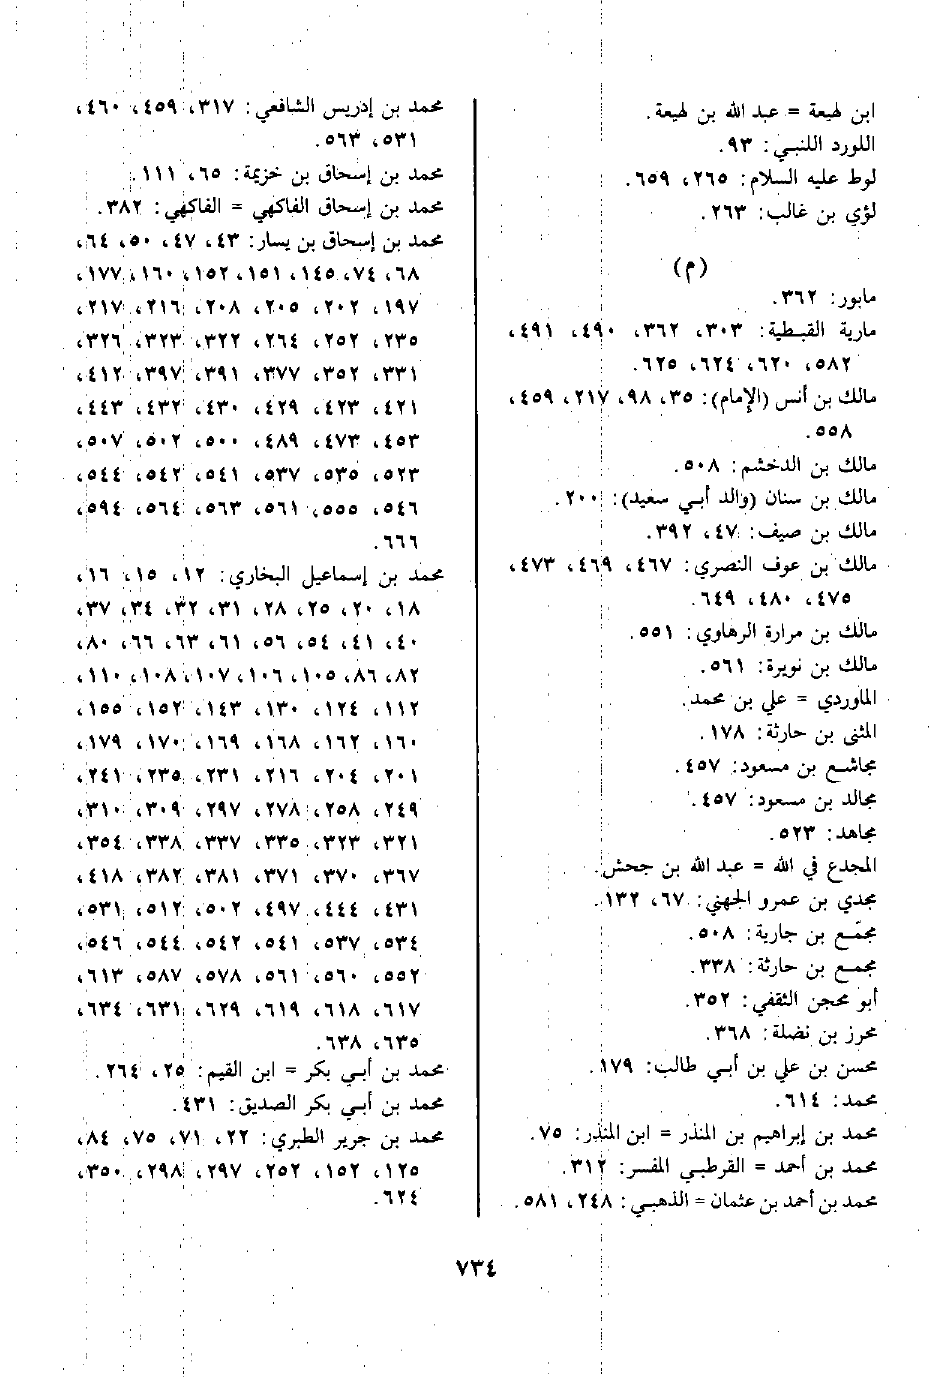 ابن لهيعة = عبد الله بن لهيعة.
اللورد اللنبي: ٩٣.
لوط عليه السلام: ٢٦٥، ٦٥٩.
لؤي بن غالب: ٢٦٣.
(م)
مابور: ٣٦٢.
مارية القبطية: ٣٠٣، ٣٦٢، ٤٩٠، ٤٩١،
٥٨٢، ٦٢٠، ٦٢٤، ٦٢٥.
مالك بن أنس (الإمام): ٣٥، ٩٨، ٢١٧، ٤٥٩،
٥٥٨.
مالك بن الدخشم: ٥٠٨.
مالك بن سنان (والد أبي سعيد): ٢٠٠.
مالك بن صيف: ٤٧، ٣٩٢.
مالك بن عوف النصري: ٤٦٧، ٤٦٩، ٤٧٣،
٤٧٥، ٤٨٠، ٦٤٩.
مالك بن مرارة الرهاوي: ٥٥١.
مالك بن نويرة: ٥٦١.
الماوردي = علي بن محمد.
المثنى بن حارثة: ١٧٨.
مجاشع بن مسعود: ٤٥٧.
مجالد بن مسعود: ٤٥٧.
مجاهد: ٥٢٣.
المجدع في الله = عبد الله بن جحش.
مجدي بن عمرو الجهني: ٦٧، ١٣٢.
مجمّع بن جارية: ٥٠٨.
مجمع بن حارثة: ٣٣٨.
أبو محجن الثقفي: ٣٥٢.
محرز بن نضلة: ٣٦٨.
محسن بن علي بن أبي طالب: ١٧٩.
محمد: ٦١٤.
محمد بن إبراهيم بن المنذر = ابن المنذر: ٧٥.
محمد بن أحمد = القرطبي المفسر: ٣١٢.
محمد بن أحمد بن عثمان = الذهبي: ٢٤٨، ٥٨١.
محمد بن إدريس الشافعي: ٣١٧، ٤٥٩، ٤٦٠،
٥٣١، ٥٦٣.
محمد بن إسحاق بن خزيمة: ٦٥، ١١١.
محمد بن إسحاق الفاكهي = الفاكهي: ٣٨٢.
محمد بن إسحاق بن يسار: ٤٣، ٤٧، ٥٠، ٦٤،
٦٨، ٧٤، ١٤٥، ١٥١، ١٥٢، ١٦٠، ١٧٧،
١٩٧، ٢٠٢، ٢٠٥، ٢٠٨، ٢١٦، ٢١٧،
٢٣٥، ٢٥٢، ٢٦٤، ٣٢٢، ٣٢٣، ٣٢٦،
٣٣١، ٣٥٢، ٣٧٧، ٣٩١، ٣٩٧، ٤١٢،
٤٢١، ٤٢٣، ٤٢٩، ٤٣٠، ٤٣٢، ٤٤٣،
٤٥٣، ٤٧٣، ٤٨٩، ٥٠٠، ٥٠٢، ٥٠٧،
٥٢٣، ٥٣٥، ٥٣٧، ٥٤١، ٥٤٢، ٥٤٤،
٥٤٦، ٥٥٥، ٥٦١، ٥٦٣، ٥٦٤، ٥٩٤،
٦٦٦.
محمد بن إسماعيل البخاري: ١٢، ١٥، ١٦،
١٨، ٢٠، ٢٥، ٢٨، ٣١، ٣٢، ٣٤، ٣٧،
٤٠، ٤١، ٥٤، ٥٦، ٦١، ٦٣، ٦٦، ٨٠،
٨٢، ٨٦، ١٠٥، ١٠٦، ١٠٧، ١٠٨، ١١٠،
١١٢، ١٢٤، ١٣٠، ١٤٣، ١٥٢، ١٥٥،
١٦٠، ١٦٢، ١٦٨، ١٦٩، ١٧٠، ١٧٩،
٢٠١، ٢٠٤، ٢١٦، ٢٣١، ٢٣٥، ٢٤١،
٢٤٩، ٢٥٨، ٢٧٨، ٢٩٧، ٣٠٩، ٣١٠،
٣٢١، ٣٢٣، ٣٣٥، ٣٣٧، ٣٣٨، ٣٥٤،
٣٦٧، ٣٧٠، ٣٧١، ٣٨١، ٣٨٢، ٤١٨،
٤٣١، ٤٤٤، ٤٩٧، ٥٠٢، ٥١٢، ٥٣١،
٥٣٤، ٥٣٧، ٥٤١، ٥٤٢، ٥٤٤، ٥٤٦،
٥٥٢، ٥٦٠، ٥٦١، ٥٧٨، ٥٨٧، ٦١٣،
٦١٧، ٦١٨، ٦١٩، ٦٢٩، ٦٣١، ٦٣٤،
٦٣٥، ٦٣٨.
محمد بن أبي بكر = ابن القيم: ٢٥، ٢٦٤.
محمد بن أبي بكر الصديق: ٤٣١.
محمد بن جرير الطبري: ٢٢، ٧١، ٧٥، ٨٤،
١٢٥، ١٥٢، ٢٥٢، ٢٩٧، ٢٩٨، ٣٥٠،
٦٢٤.
٧٣٤